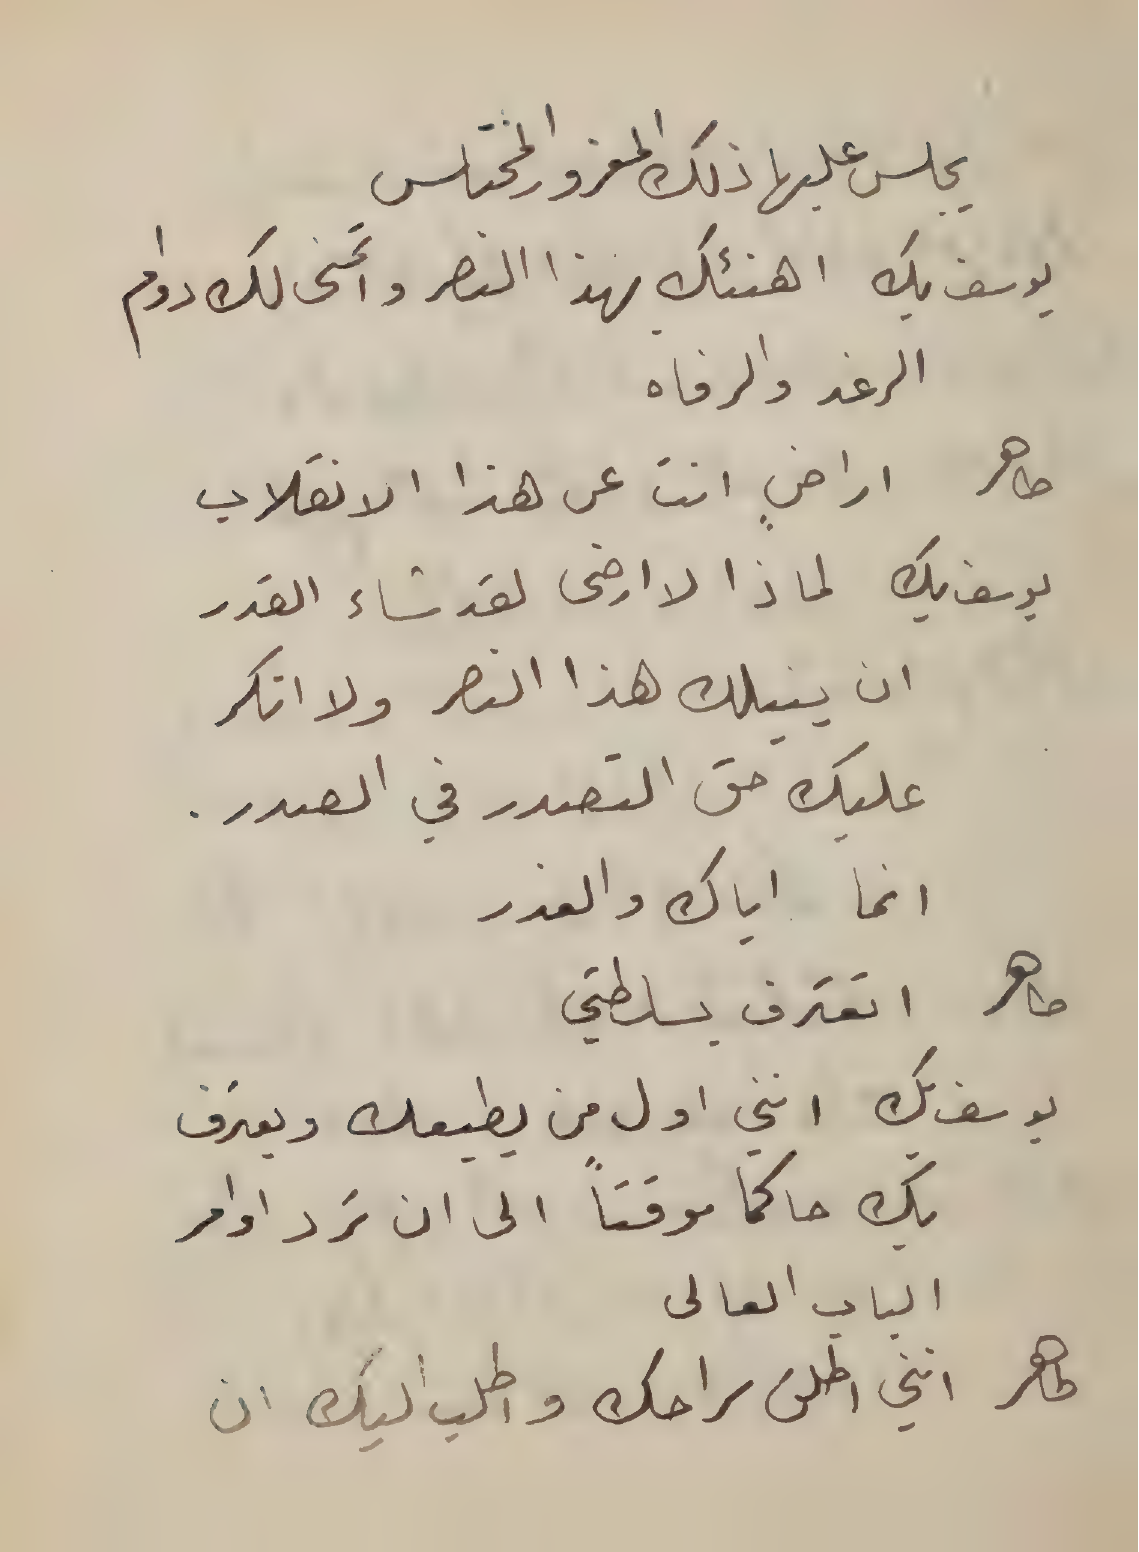 يجلس عليها ذلك المغرور المختلس
يوسف بك اهنئك بهذا النصر واتمنى لك دوام
الرغد والرفاه
طاهر اراضٍ انت عن هذا الانقلاب
يوسف بك لماذا لا ارضى لقد شاء القدر
ان ينيلك هذا النصر ولا انكر
عليك حق التصدر في الصدر .
انما اياك والغدر
طاهر اتعترف بسلطتي
يوسف بك انني اول من يطيعك ويعترف
بك حاكما موقتاً الى ان ترد اوامر
الباب العالى
طاهر انني اطلق سراحك واطلب اليك ان